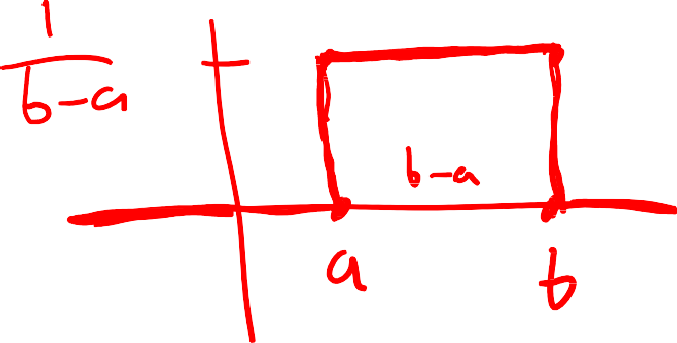 1
b-a
b-a
a
b